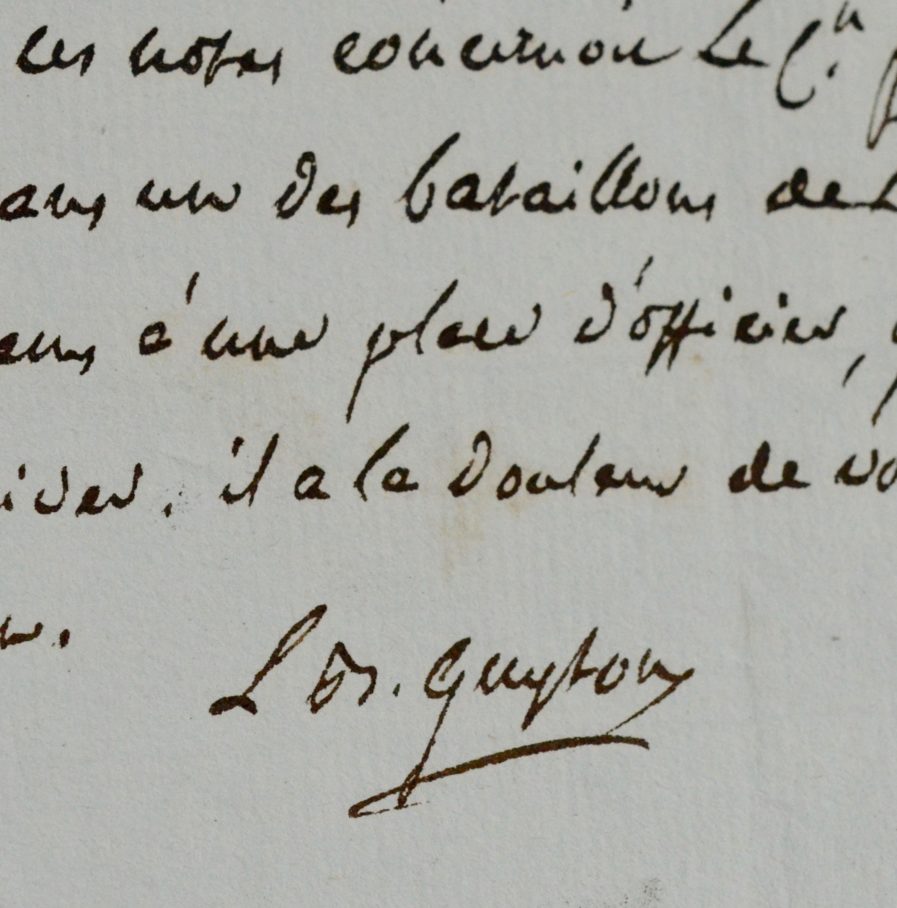 ces notes concernan Le C.n
ans un des bataillons de L
ens à une place d'officier,
iver. il a la Douleur de vo
L B. Guyton